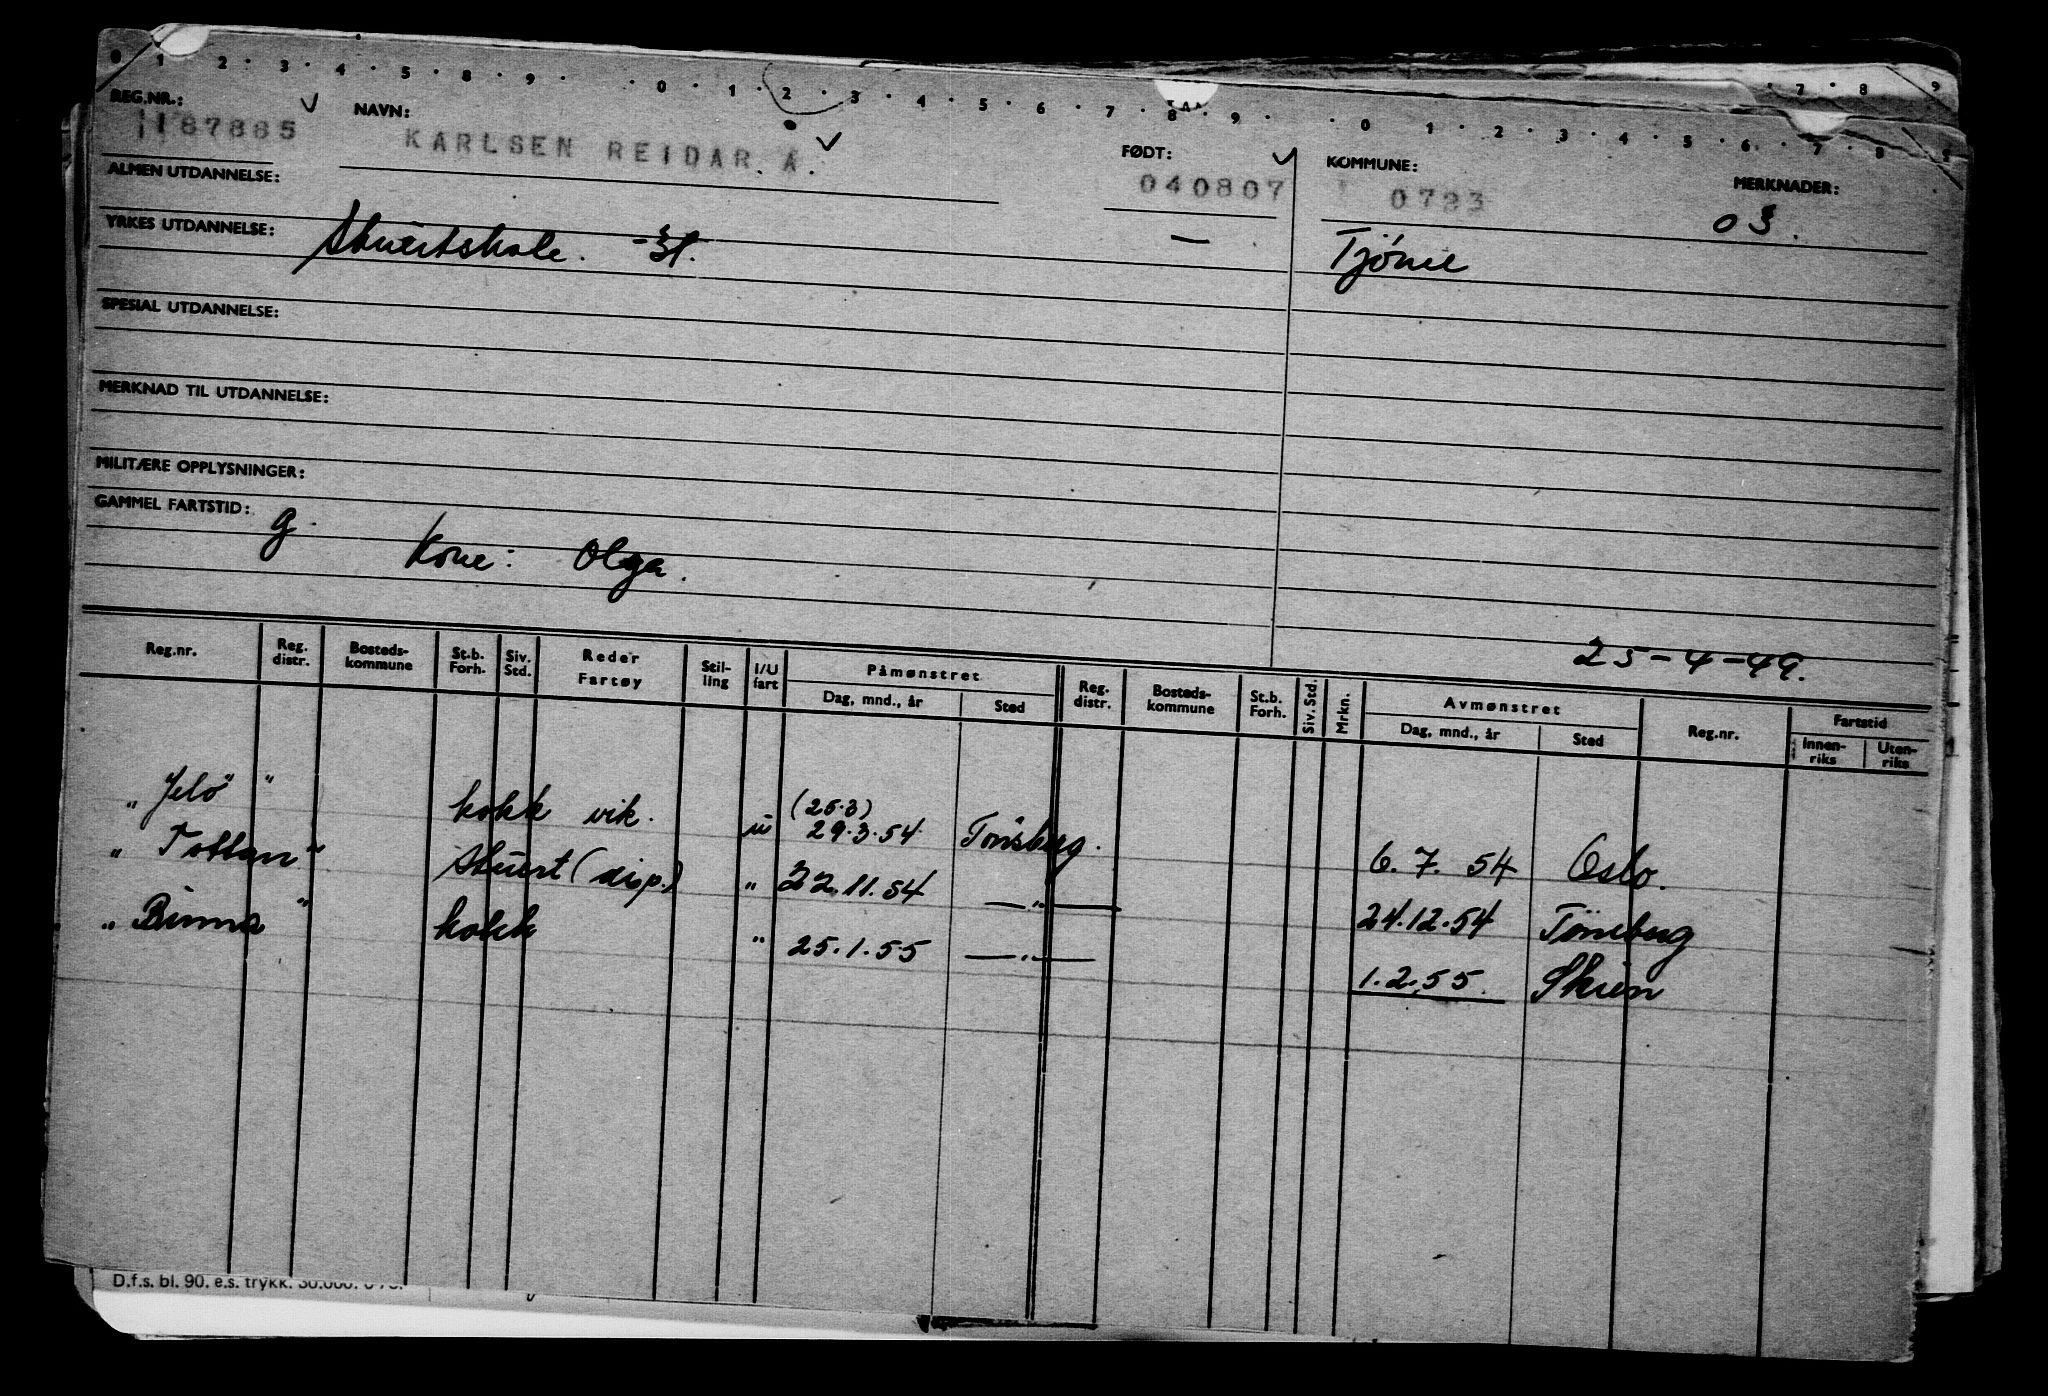 0 1 2 3 4 5 6 7 8 9 0 1 2 3 4 5 6 7 8 9 0 1 2 3 4 5 6 7 8 9
7 8 9
REG.NR.: NAVN: FØDT: KOMMUNE: MERKNADER:
187885 KARLSEN REIDAR A. 040807 0723 03.
ALMEN UTDANNELSE:
YRKES UTDANNELSE: Stuertskole. - Tjöme
SPESIAL UTDANNELSE:
MERKNAD TIL UTDANNELSE:
MILITÆRE OPPLYSNINGER:
GAMMEL FARTSTID: g.
Kone: Olga.
25-4-49.
Reg.nr. Reg. distr. Bosteds-kommune St.b. Forh. Siv. Std. Reder Fartøy Stil-ling I/U fart Påmønstret Dag, mnd., år Sted Reg. distr. Bosteds-kommune St.b. Forh. Siv. Std. Mrkn. Avmønstret Dag, mnd., år Sted Reg.nr. Fartstid Innen-riks Uten-riks
(26.3)
" Jelö " kokk vik. u 29.3.54 Tönsberg. 6.7.54 Oslo.
" Tottan " Stuert (disp.) " 22.11.54 —"— 24.12.54 Tönsberg
" Binna " kokk " 25.1.55 —"— 1.2.55. Skien
D.f.s. bl. 90. e.s. trykk.